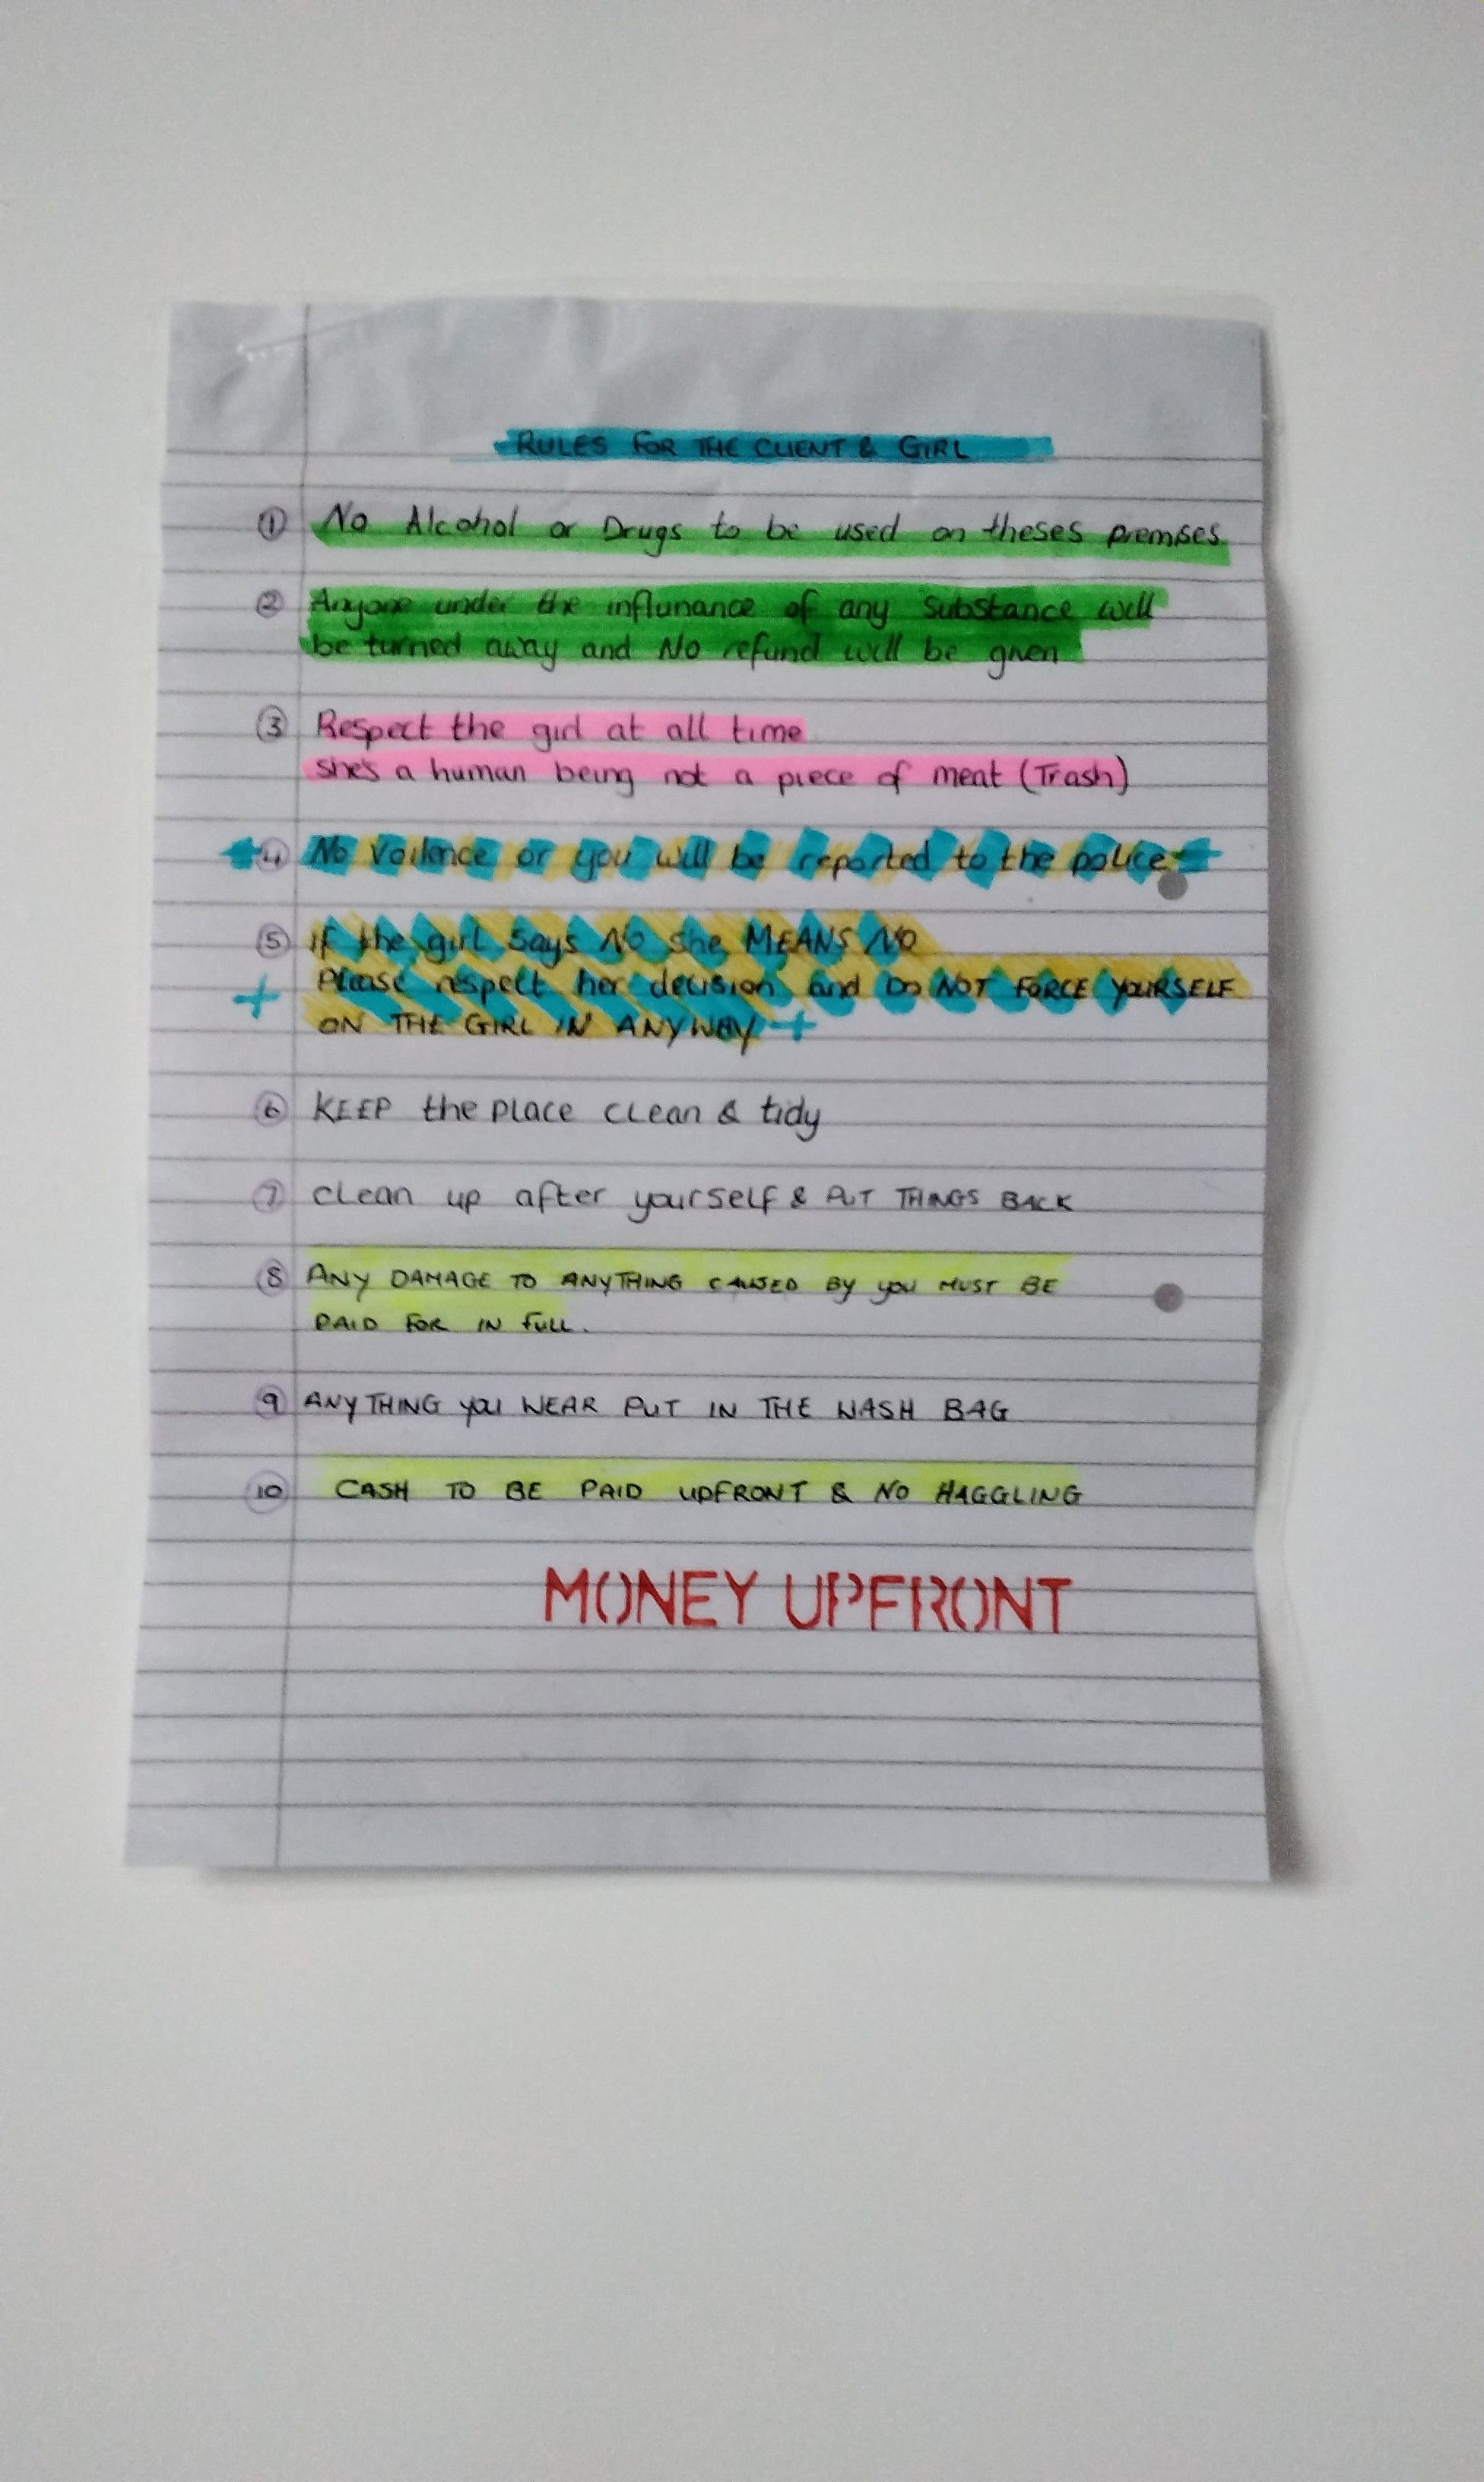 RULES FOR THE CLIENT & GIRL
① No Alcohol or Drugs to be used on theses premises
② Anyone under the influnance of any substance will
be turned away and No refund will be given
③ Respect the girl at all time
she's a human being not a piece of meat (Trash)
④ No Voilence or you will be reported to the police
⑤ If the girl says NO she MEANS NO
Please respect her decision and DO NOT FORCE YOURSELF
ON THE GIRL IN ANYWAY
⑥ KEEP the PLACE CLEAN & tidy
⑦ CLEAN up after yourself & PUT THINGS BACK
⑧ ANY DAMAGE TO ANYTHING CAUSED BY you MUST BE
PAID FOR IN FULL.
⑨ ANYTHING you WEAR PUT IN THE WASH BAG
⑩ CASH TO BE PAID UPFRONT & NO HAGGLING
MONEY UPFRONT